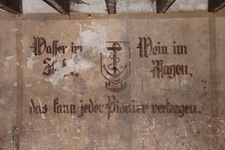 Wasser im Wein im
Magen,
das kann jeder Pionier vertragen.